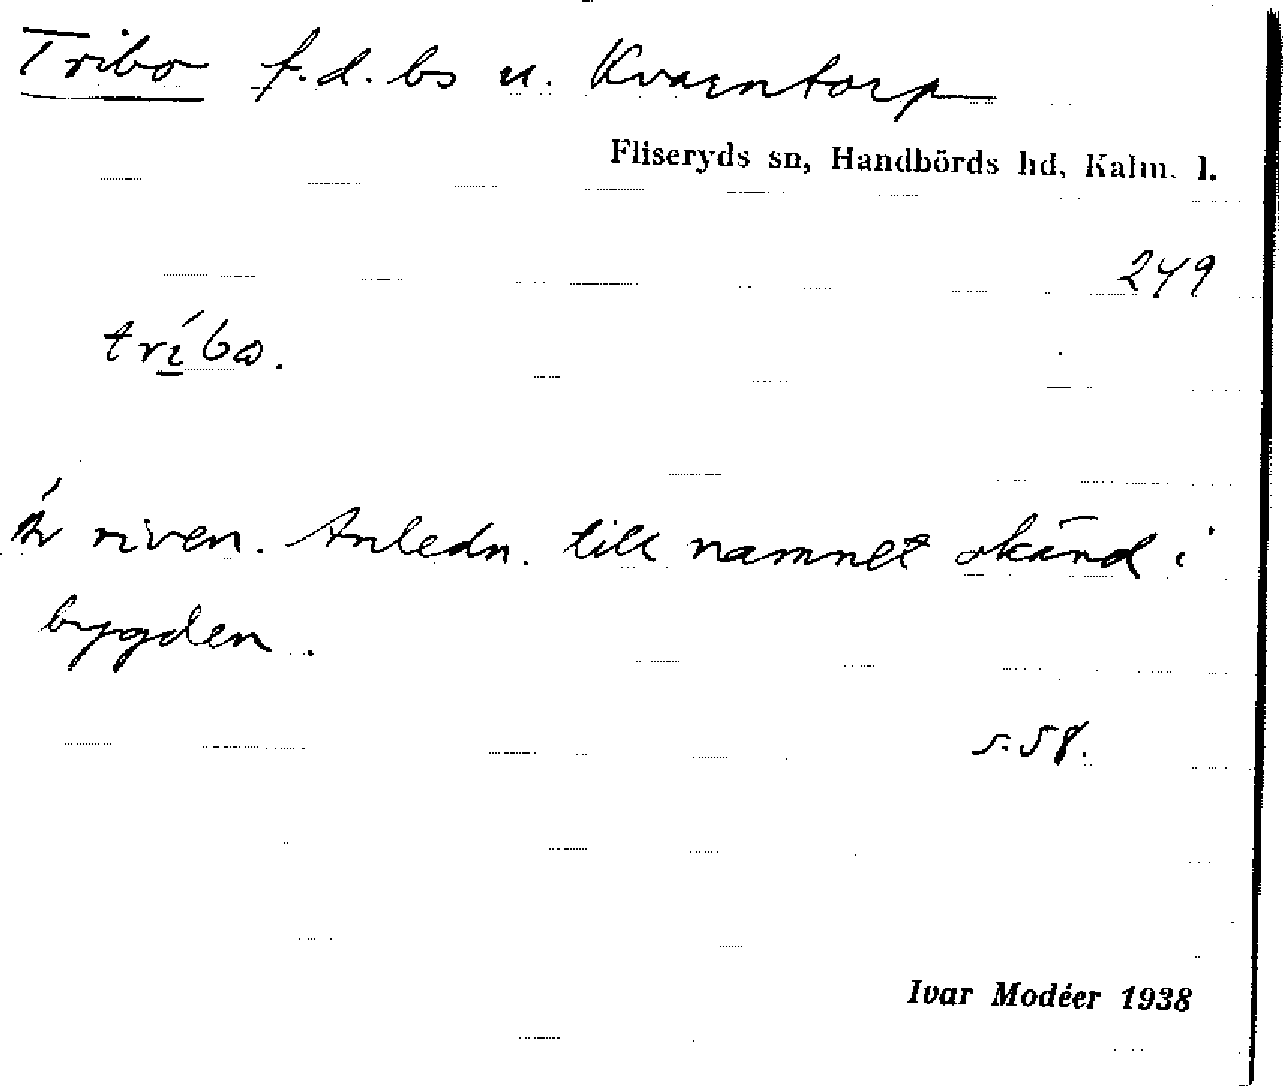 Tribo f.d. bs u. Kvarntorp
Fliseryds sn, Handbörds hd, Kalm. l.
249
tríbω.
Är riven. Anledn. till namnet okänd i
bygden.
s. 58.
Ivar Modéer 1938